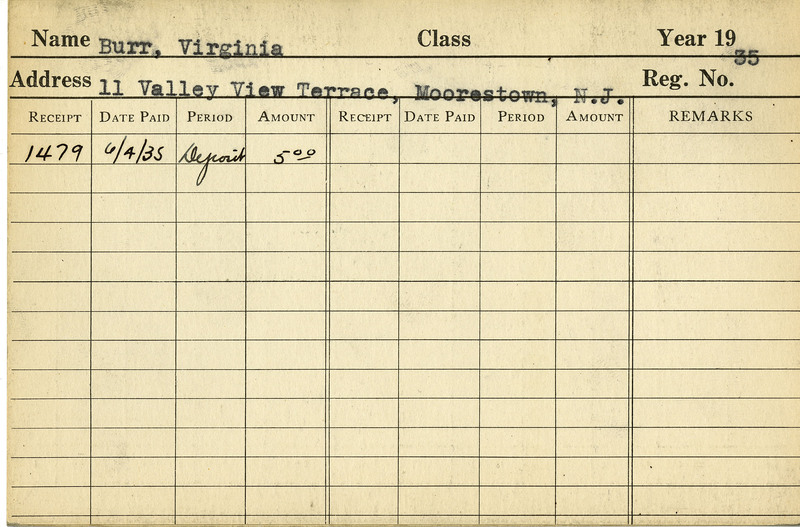 Name Burr, Virginia Class Year 1935
Address 11 Valley View Terrace, Moorestown, N.J. Reg. No.
RECEIPT DATE PAID PERIOD AMOUNT RECEIPT DATE PAID PERIOD AMOUNT REMARKS
1479 6/4/35 Deposit 5.00